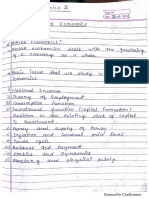 Macro Economics:
Macro economics deals with the functioning
of a economy as a whole.
Basic Issue that we study in
economics
National Income
Theory of Employment
Consumption Function
Investment Function (Capital Formation)
Addition to the existing stock of capital
is Investment
Money and supply of Money
Inflation and General price level
Trade Cycle
Balance and Payment
Statics and Dynamics
Monetary and physical policy
Scanned by CamScanner